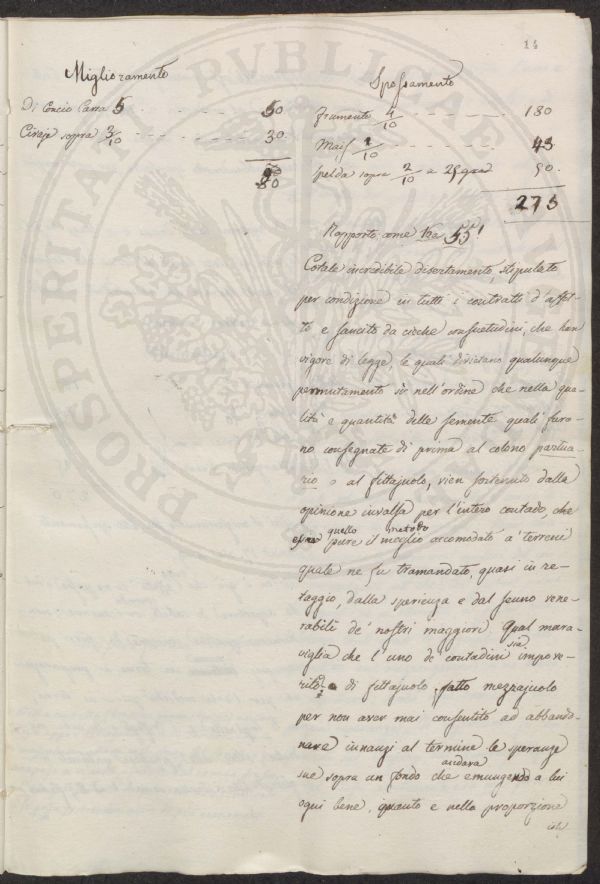 14
Miglioramento
Di Concio Carra 5 50
Civaje sopra 3/10 30.
80
Spossamento
Frumento 4/10 180
Mais 1/10 45
Spelda sopra 2/10 a 25 50.
275
Rapporto come 55!
Cotale incredibile disertamento, stipulato
per condizione in tutti i contratti d'affit-
to e sancito da cieche consuetudini, che han
vigore di legge, le quali divietano qualunque
permutamento sì nell'ordine che nella qua-
lità e quantità delle semente quali furo-
no consegnate di prima al colono parzia-
rio o al fittajuolo, vien sostenuto dalla
opinione invalsa per l'intero contado, che
quello metodo
pure il meglio accomodato a' terreni
quale ne fu tramandato, quasi in re-
taggio, dalla sperienza e dal senno vene-
rabile de' nostri maggiori. Qual mara-
sia
viglia che l'uno de' contadini impove-
rito di fittajuolo, fatto mezzajuolo
per non aver mai consentito ad abbando-
nare innanzi al termine le speranze
andava
sue sopra un fondo che emungendo a lui
ogni bene, quanto e nella proporzione